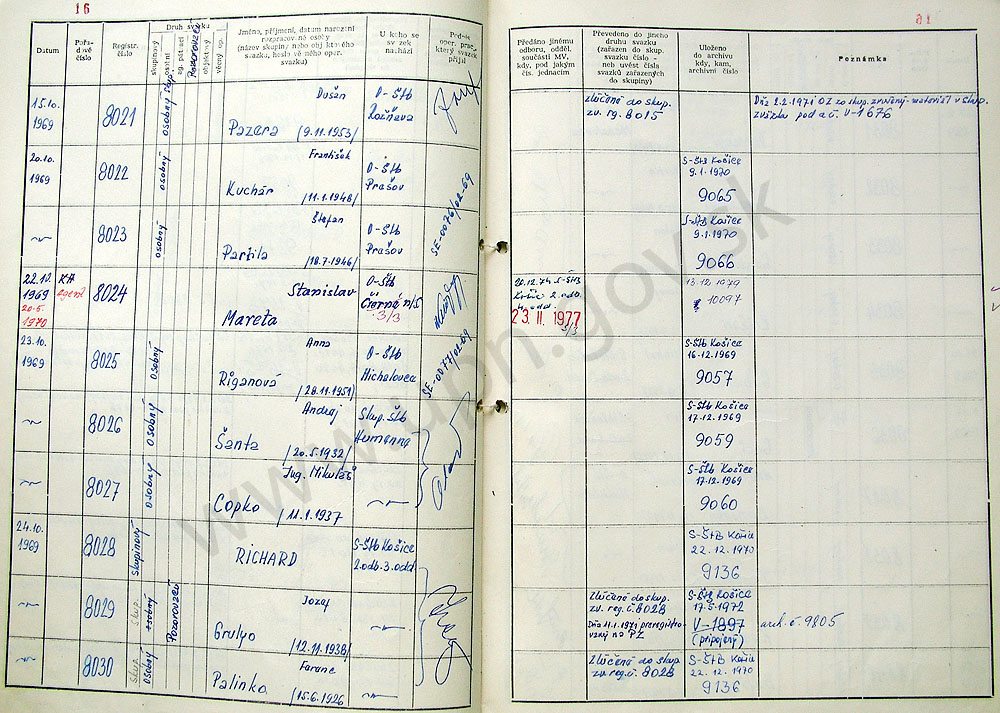 16
Datum
Pořadové číslo
Registr. číslo
Druh svazku
skupinový
osobní
objektový
Pozorovací
Jméno, příjmení, datum narození
rozpracov né osoby
(název skupiny nebo obj ktového
svazku, heslo vě ného oper.
svazku)
U koho se
sv zek
nachází
15.10.
1969
8021
osobný skup.
Dušan
Pazera /9.11.1953/
O-Štb
Rožňava
20.10.
1969
8022
osobný
František
Kuchár /11.1.1948/
O-Štb
Prašov
8023
osobný
Štefan
Partila /18.7.1946/
O-Štb
Prašov
SE-0076/02-69
22.10.
1969
20.5.
1970
KA
agent
8024
Stanislav
Mareta
O-Štb
Čierná n/S
3/3
23.10.
1969
8025
osobný
Anna
Riganová /28.11.1951/
O-Štb
Michalovce
SE-0077/02-69
8026
osobný
Andrej
Šanta /20.5.1932/
Skup. Štb
Humenné
8027
osobný
Ing. Mikuláš
Copko /11.1.1937
24.10.
1969
8028
skupinový
RICHARD
S-Štb Košice
2.odb.3.odd
8029
skup.
osobný
Pozorovací
Jozef
Grulyo /12.11.1938/
8030
skup.
osobný
Palinko /15.6.1926
61
Předáno jinému
odboru, odděl.
součásti MV,
kdy, pod jakým
čís. jednacím
Převedeno do jiného
druhu svazku
(zařazen do skup.
svazku číslo -
neb uvést čísla
svazků zařazených
do skupiny)
Uloženo
do archivu
kdy, kam,
archivní číslo
Poznámka
zlúčené do skup.
zv. reg. 8015
Dňa 2.2.1971 OZ zo skup.
zväzku pod a č. V-1676
S-ŠtB Košice
9.1.1970
9065
S-Štb Košice
9.1.1970
9066
20.12.74 S-ŠtB
23. II. 1977
3/3
13.12.1979
10097
S-Štb Košice
16.12.1969
9057
S-Štb Košice
17.12.1969
9059
S-Štb Košice
17.12.1969
9060
S-ŠtB Košice
22.12.1970
9136
Zlúčené do skup.
zv. reg. č. 8028
Dňa 11.1.1971 preregistro-
vaný na PZ
S-ŠtB Košice
17.5.1972
V-1897
(pripojený)
arch. č. 9805
Zlúčené do skup.
zv. reg. č. 8028
S-ŠtB Košice
22.12.1970
9136
www.upn.gov.sk